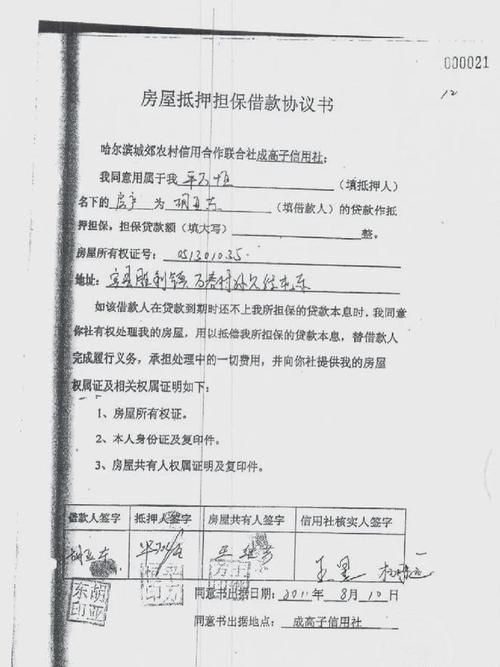 000021
12
房屋抵押担保借款协议书
哈尔滨城郊农村信用合作联合社成高子信用社：
我同意用属于我（填抵押人）
名下的房产为胡亚东（填借款人）的贷款作抵
押担保，担保贷款额（填大写）整。
房屋所有权证号：051301035
地址：宾县胜利镇万春村
如该借款人在贷款到期时还不上我所担保的贷款本息时，我同意
你社有权处理我的房屋，用以抵偿我所担保的贷款本息，替借款人
完成履行义务，承担处理中的一切费用，并向你社提供我的房屋
权属证及相关权属证明如下：
1、房屋所有权证。
2、本人身份证及复印件。
3、房屋共有人权属证明及复印件。
借款人签字 抵押人签字 房屋共有人签字 信用社核实人签字
胡亚东
东胡
印亚
同意书出据日期：2011年8月10日
同意书出据地点：成高子信用社